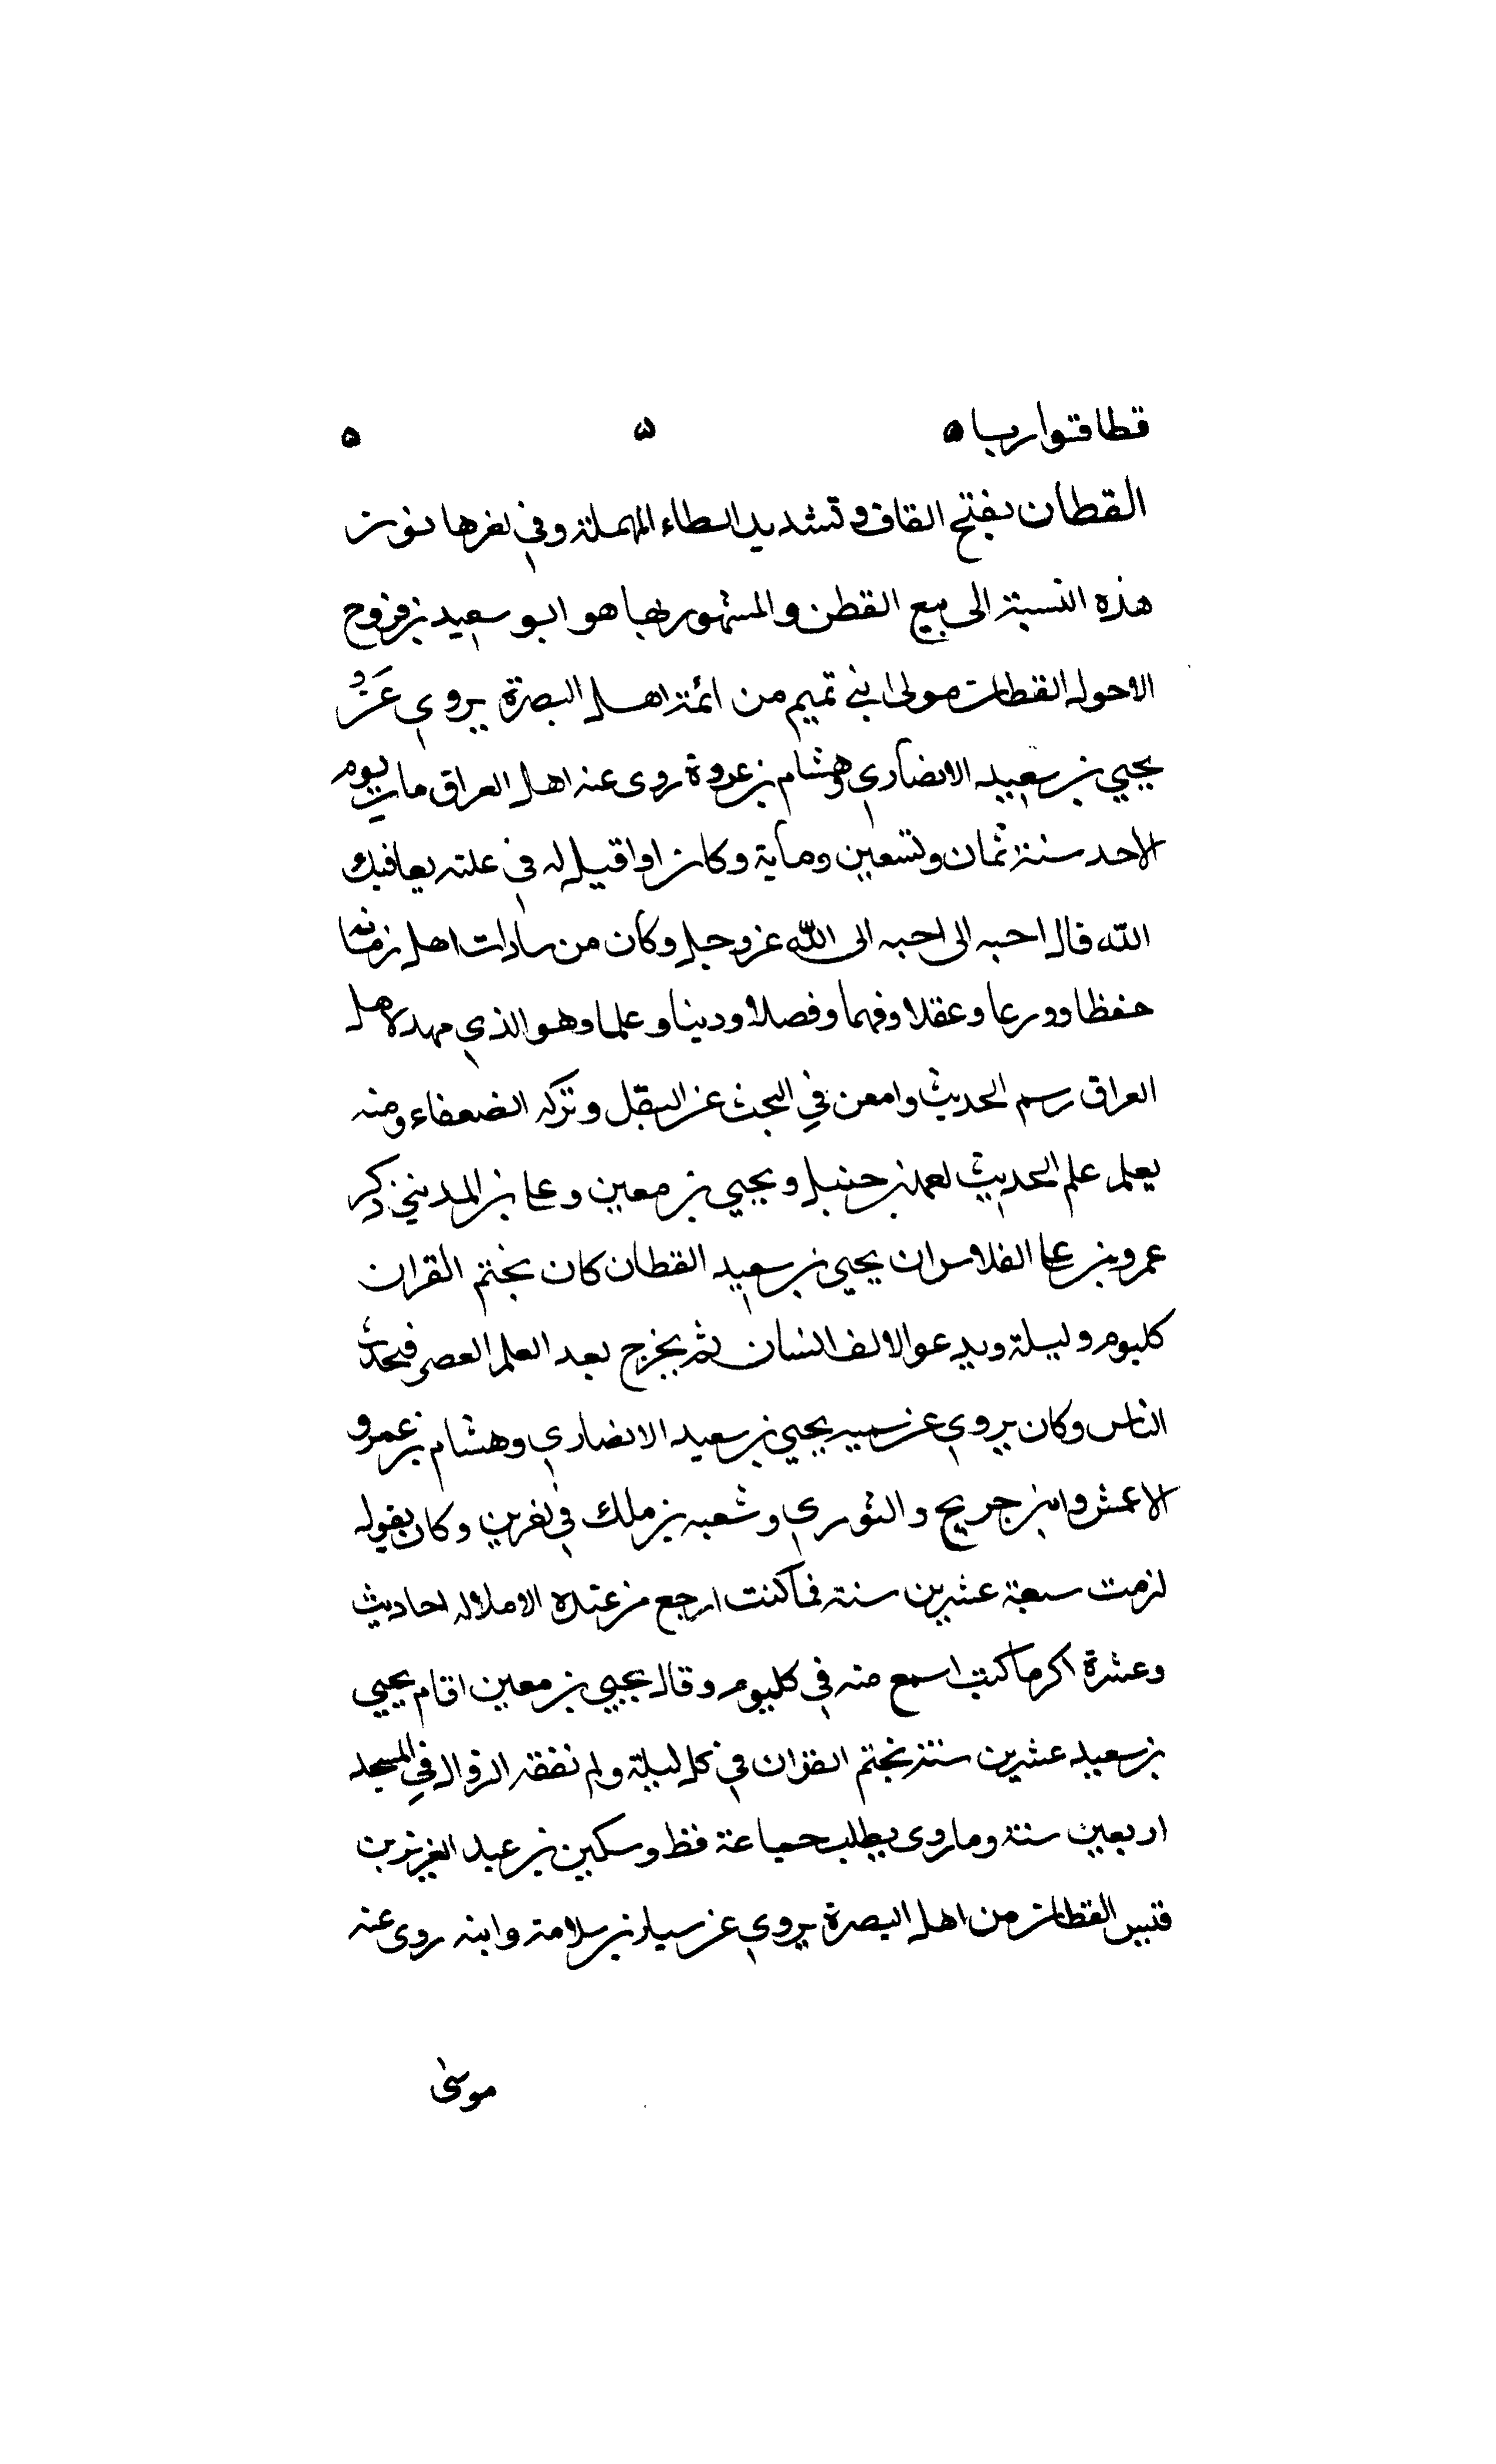 قطا قتوا ربيبا ه ه ه
القطان بفتح القاف وتشديد الطاء المهملة وفي اخرها نون
هذه النسبة الى بيع القطن والمشهور بها هو ابو سعيد بن فروخ
الاحول القطان مولى بني تميم من ائمة اهل البصرة يروي عن
يحيي بن سعيد الانصاري وهشام بن عروة روى عنه اهل العراق مات يوم
الاحد سنة ثمان وتسعين وماية وكان اذا قيل له في علته يعافيك
الله قال احبه الى احبه الى الله عز وجل وكان من سادات اهل زمانه
حفظا وورعا وعقلا وفهما وفضلا ودينا وعلما وهو الذي مهد لاهل
العراق رسم الحديث وامعن في البحث عن النقل وترك الضعفاء ومنه
يعلم علم الحديث احمد بن حنبل ويحيي بن معين وعلي بن المديني ذكر
عمرو بن علي الفلاس ان يحيي بن سعيد القطان كان يختم القران
كل يوم وليلة ويدعو الالف انسان ثم يخرج بعد العلم العصر فيحدث
الناس وكان يروي عن سميه يحيي بن سعيد الانصاري وهشام بن عمرو
الاعمش وابن جريج والثوري وشعبه بن ملك في اخرين وكان يقول
لزمت سبعة عشرين سنة فما كنت ارجع من عنده الا ملال احاديث
وعشرة اكرما كنت اسمع منه في كل يوم وقال يحيي بن معين اقام يحيي
بن سعيد عشرين سنة يختم القران في كل ليلة ولم تفقه الزوال في المسجد
اربعين سنة وما روى يطلب جماعة قط وسكين بن عبد العزيز بن
قيس القطان من اهل البصرة يروي عن سيار بن سلامة وابنه روى عنه
موسى